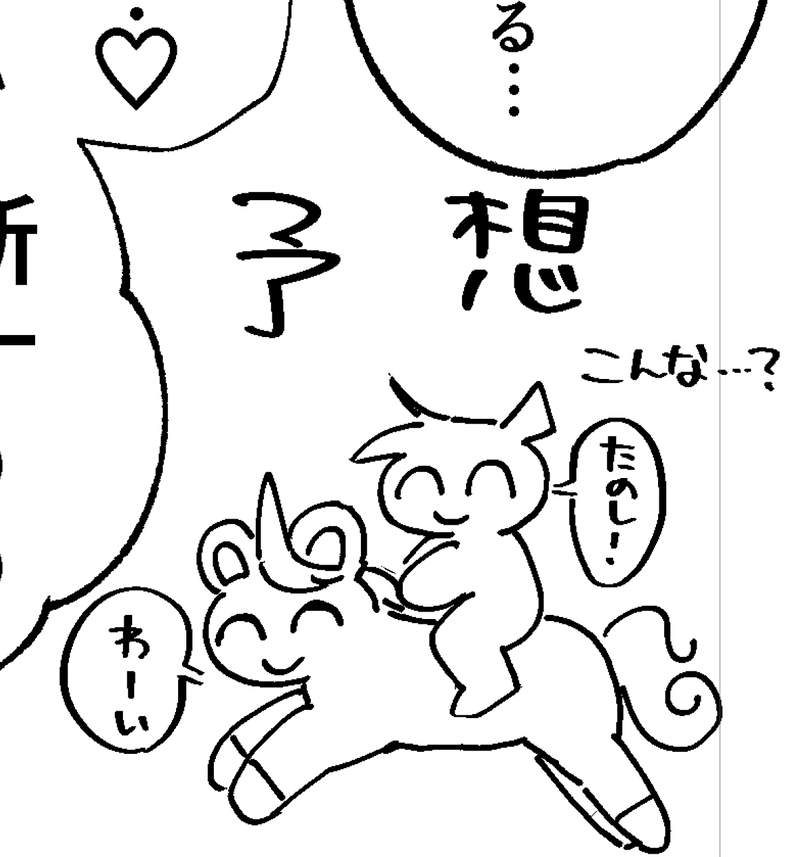 る…
予想
こんな…？
たのしー！
わーい